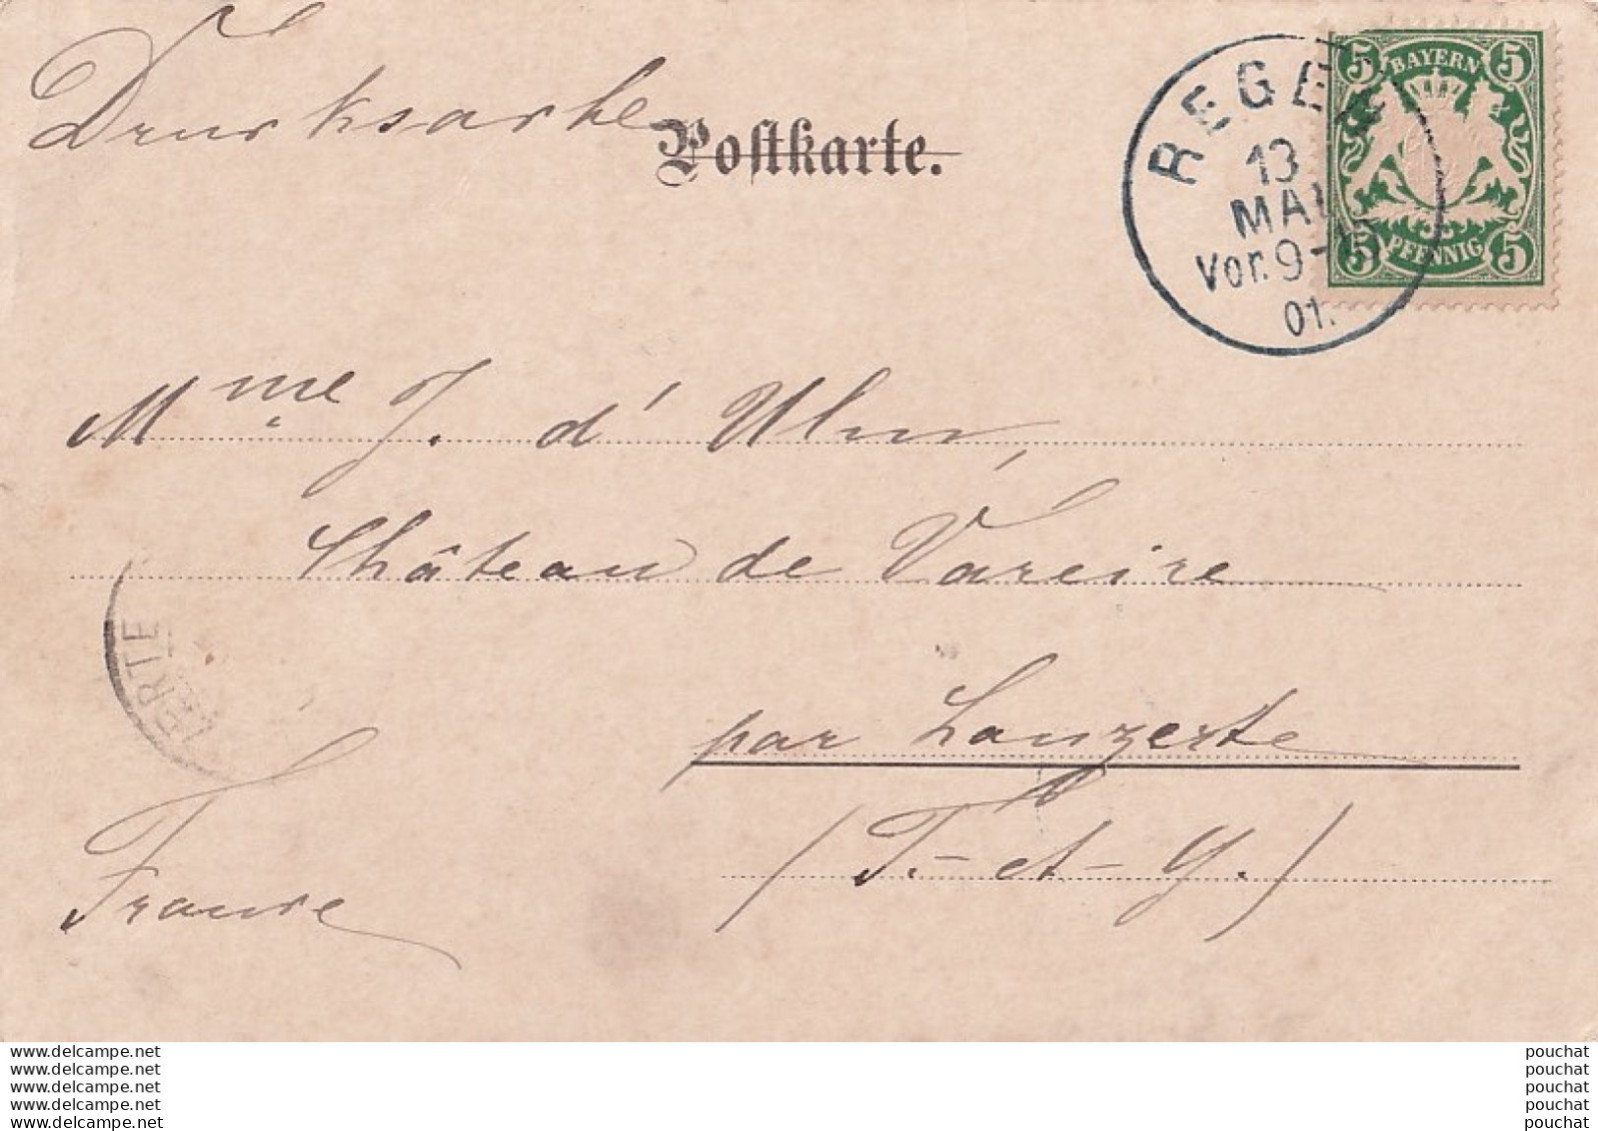 Drucksache
Postkarte.
REGEN
13
MAI
Vor. 9-10
01.
5 BAYERN 5
5 PFENNIG 5
Mme J. d'Ulm,
Château de Vareire
par Lauzerte
(T.-et-G.)
France
ZERTE
www.delcampe.net
www.delcampe.net
www.delcampe.net
www.delcampe.net
www.delcampe.net
pouchat
pouchat
pouchat
pouchat
pouchat